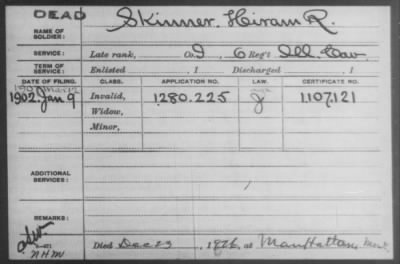 DEAD
NAME OF SOLDIER: Skinner, Hiram R.
SERVICE: Late rank, Co. I, 6 Reg't Ill. Cav.
TERM OF SERVICE: Enlisted , 1 Discharged , 1
DATE OF FILING. CLASS. APPLICATION NO. LAW. CERTIFICATE NO.
1902. Jan 9 Invalid, 1.280.225 1.107.121
Widow,
Minor,
ADDITIONAL SERVICES:
REMARKS:
Died Dec 23, 1926, at Manhattan, Mont.
NHM